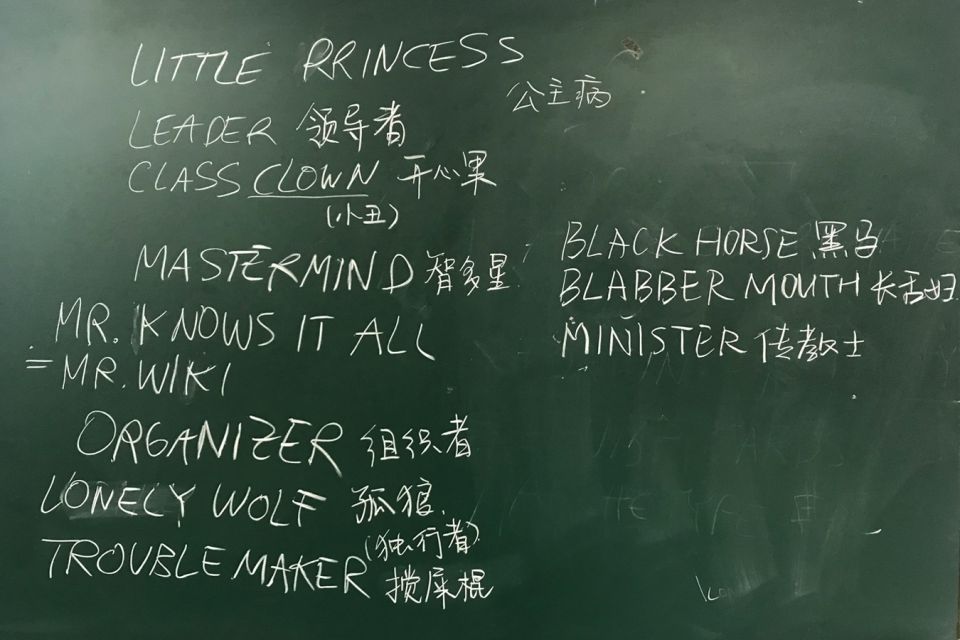 LITTLE PRINCESS
公主病
LEADER 领导者
CLASS CLOWN 开心果
(小丑)
MASTERMIND 智多星
MR. KNOWS IT ALL
= MR. WIKI
ORGANIZER 组织者
LONELY WOLF 孤狼.
(独行者)
TROUBLE MAKER 搅屎棍
BLACK HORSE 黑马
BLABBER MOUTH 长舌妇
MINISTER 传教士